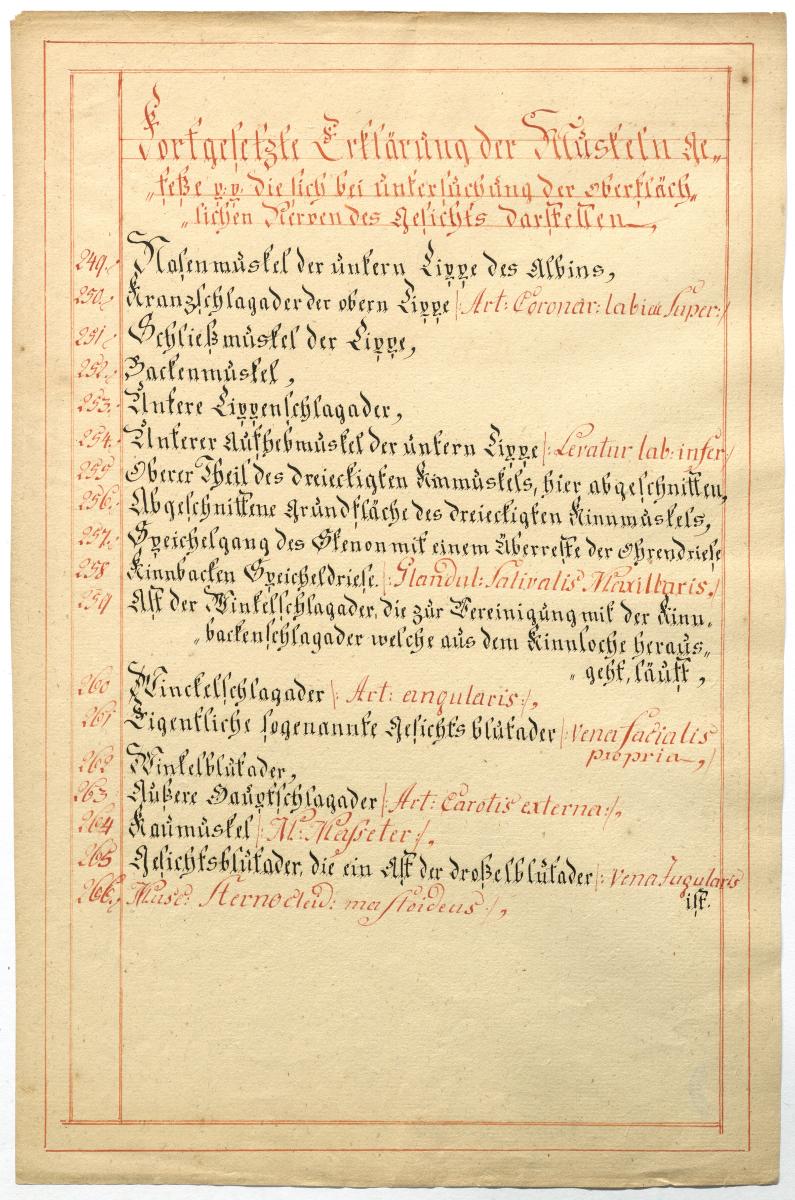 Fortgesetzte Erklärung der Muskeln Ge„
„feße p: p: die sich bei untersuchung der oberfläch„
„lichen Nerven des Gesichts darstellen,
249. Nasenmuskel der untern Lippe des Albins,
250. Kranzschlagader der obern Lippe /: Art: Coronar: labiae Super: /
251. Schließmuskel der Lippe,
252. Backenmuskel,
253. Untere Lippenschlagader,
254. Unterer Aufhebmuskel der untern Lippe /: Levatur lab: infer /
255 Oberer Theil des dreieckigten Kinmuskels, hier abgeschnitten,
256. Abgeschnittene Grundfläche des dreieckigten Kinnmuskels,
257. Speichelgang des Stenon mit einem Überreste der Ohrendriese
258 Kinnbacken Speicheldriese. /: Glandul: Salivalis Maxillaris. /
259 Ast der Winkelschlagader, die zur Vereinigung mit der Kinn„
„backenschlagader welche aus dem Kinnloche heraus„
„geht, läuft,
260 Winckelschlagader /: Art: angularis: /,
261 Eigentliche sogenannte Gesichts blutader /: Vena facialis
propria, /
262 Winkelblutader,
263 Äußere Hauptschlagader /: Art: Carotis externa: /,
264 Kaumuskel /: M: Masseter: /,
265 Gesichtsblutader, die ein Ast der droßelblutader /: Vena Jugularis
ist.
266. Musc: Sternocleid: mastoideus: /,